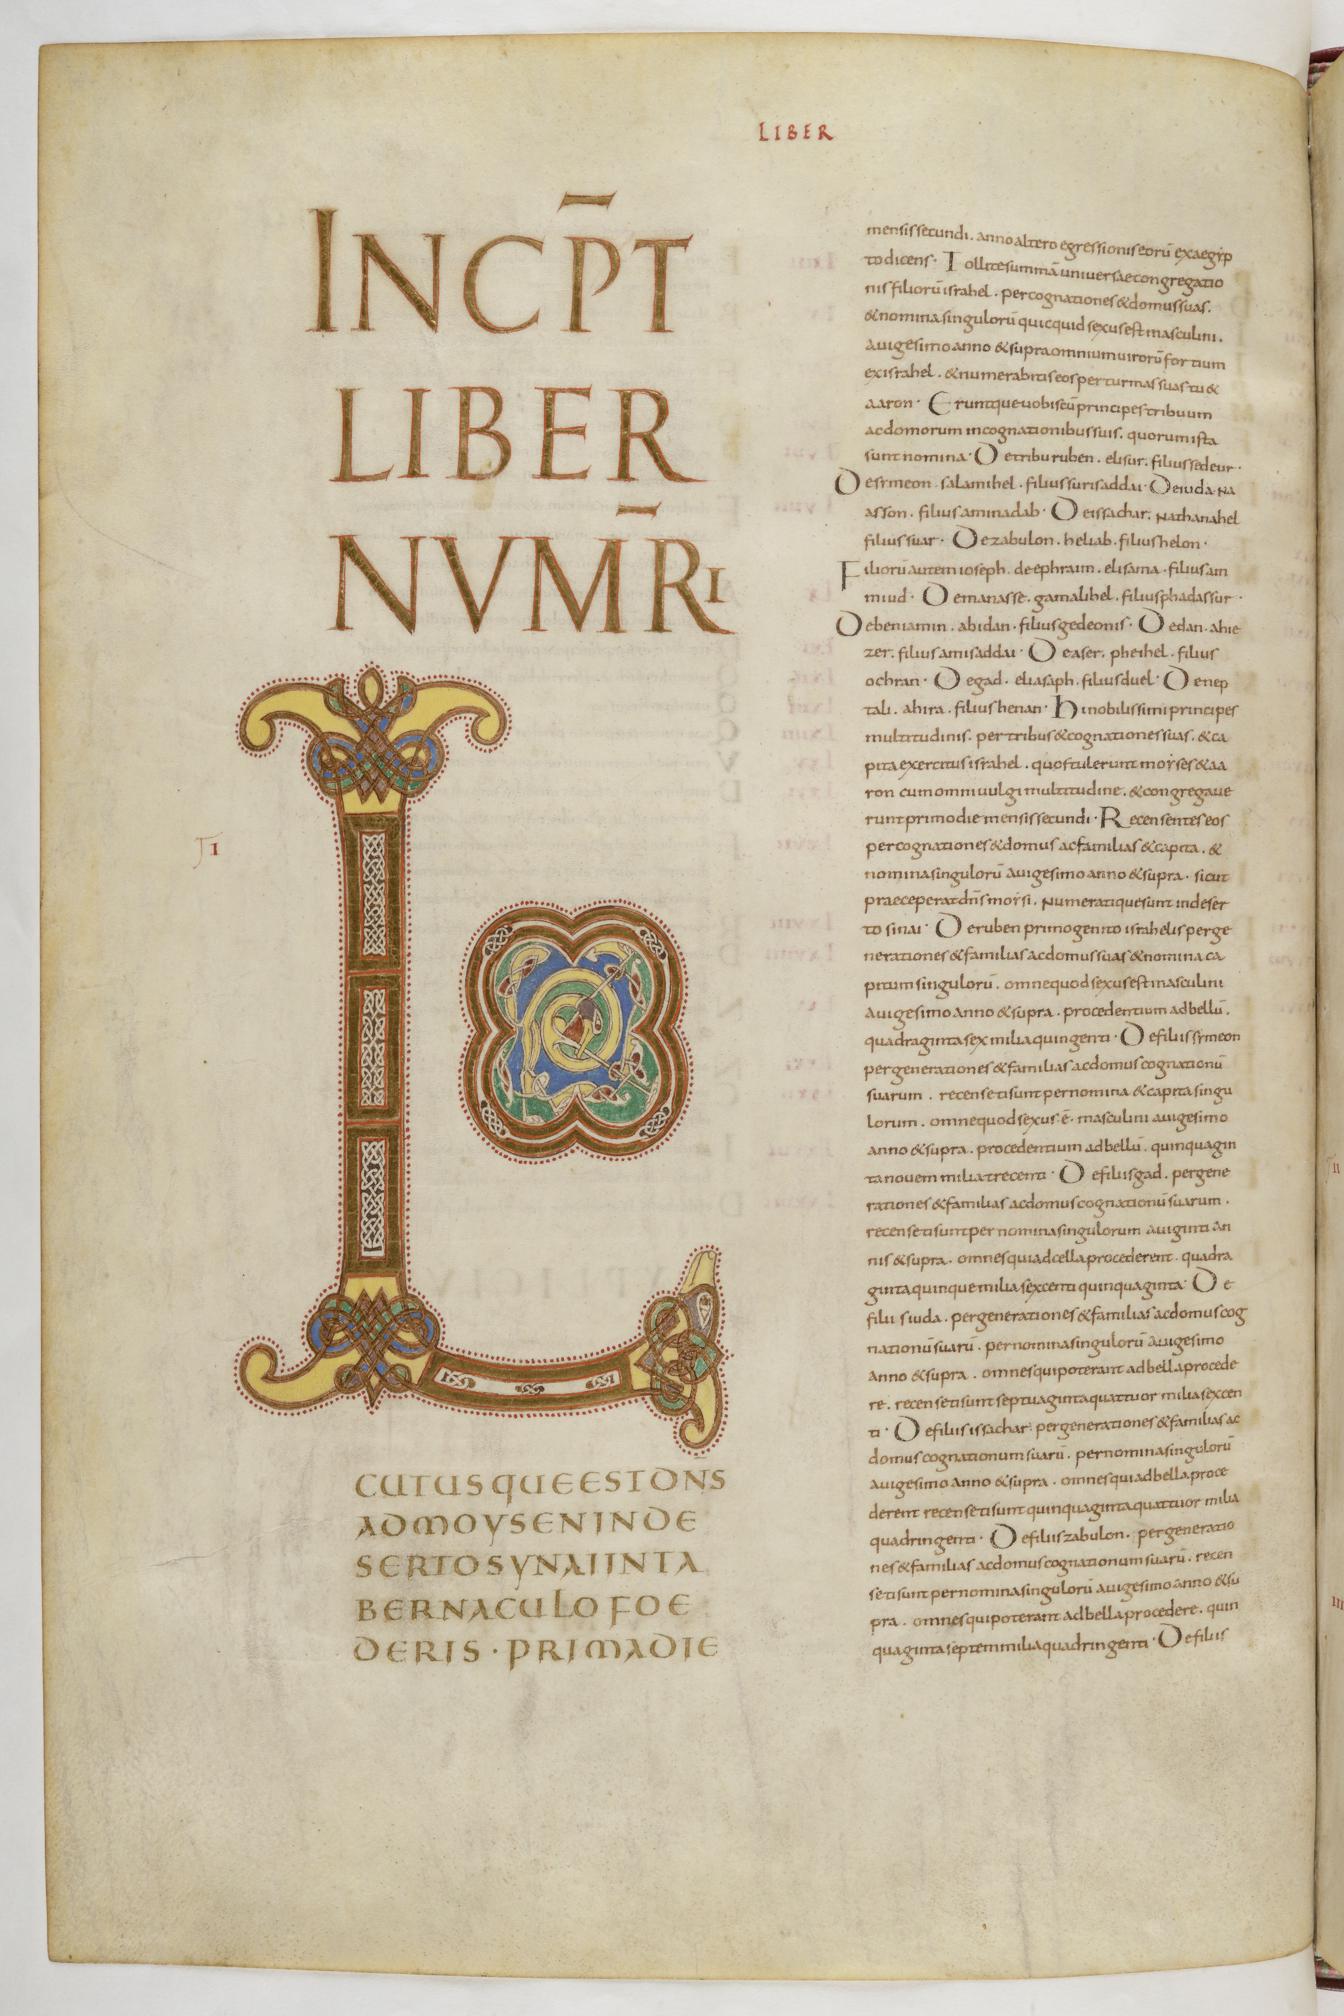 LIBER
INCP̄T
LIBER
NVMR̄I
I
LO
CUTUSQUEESTDN̄S
ADMOYSENINDE
SERTOSYNAIINTA
BERNACULOFOE
DERIS · PRIMADIE
mensissecundi. annoalteroegressioniseorū exaegyp
todicens · Tollitesummāuniversaecongregatio
nisfiliorūisrahel. percognationes&domussuas.
&nominasingulorū quicquidsexusestmasculini.
auigesimoanno &supraomniumuirorūfortium
exisrahel. &numerabitiseosperturmassuastu&
aaron · Eruntqueuobiscūprincipestribuum
acdomorum incognationibussuis. quorumista
suntnomina · Detriburuben. elisur. filiussedeur ·
Desymeon. salamihel. filiussurisaddai · Deiuda. Na
asson. filiusaminadab · Deissachar. Nathanahel
filiussuar · Dezabulon. heliab. filiushelon ·
Filiorū autemioseph. deephraim. elisama. filiusam
miud · Demanasse. gamalihel. filiusphadassur ·
Debeniamin. abidan. filiusgedeonis · Dedan. ahie
zer. filiusamisaddai · Deaser. phegihel. filius
ochran · Degad. eliasaph. filiusduel · Denep
tali. ahira. filiushenan · Hinobilissimiprincipes
multitudinis. pertribus&cognationessuas. &ca
pitaexercitusisrahel. quostuleruntmoyses&aa
ron cumomniuulgimultitudine. &congregaue
runtprimodiemensissecundi · Recensenteseos
percognationes&domus acfamilias&capita. &
nominasingulorū auigesimoanno&supra. sicut
praeceperatdn̄smoysi. Numeratiquesunt indeser
to sinai · Deruben primogenito israhelisperge
nerationes&familiasacdomussuas&nomina ca
pitumsingulorū. omnequodsexusestmasculini
auigesimoanno &supra. procedentium adbellū.
quadragintasex miliaquingenti · Defiliissymeon
pergenerationes&familiasacdomuscognationū
suarum. recensitisuntpernomina &capitasingu
lorum. omnequodsexus ē. masculini auigesimo
anno &supra. procedentium adbellū. quinquagin
tanouem miliatrecenti · Defiliisgad. pergene
rationes&familias acdomuscognationūsuarum.
recensitisuntper nominasingulorum auiginti an
nis &supra. omnesquiadcellaprocederent. quadra
gintaquinquemiliasexcentiquinquaginta · De
filiis iuda. pergenerationes&familiasacdomuscog
nationūsuarū. pernominasingulorū auigesimo
anno &supra. omnesquipoterant adbellaprocede
re. recensitisuntseptuagintaquattuor miliasexcen
ti · Defiliisissachar. pergenerationes&familiasac
domuscognationumsuarū. pernominasingulorū
auigesimoanno &supra. omnesquiadbellaproce
derent recensitisunt quinquagintaquattuor milia
quadringenti · Defiliiszabulon. pergeneratio
nes&familias acdomuscognationumsuarū. recen
sitisuntpernominasingulorū auigesimoanno &su
pra. omnesquipoterant adbellaprocedere. quin
quagintaseptemmiliaquadringenti · Defiliis